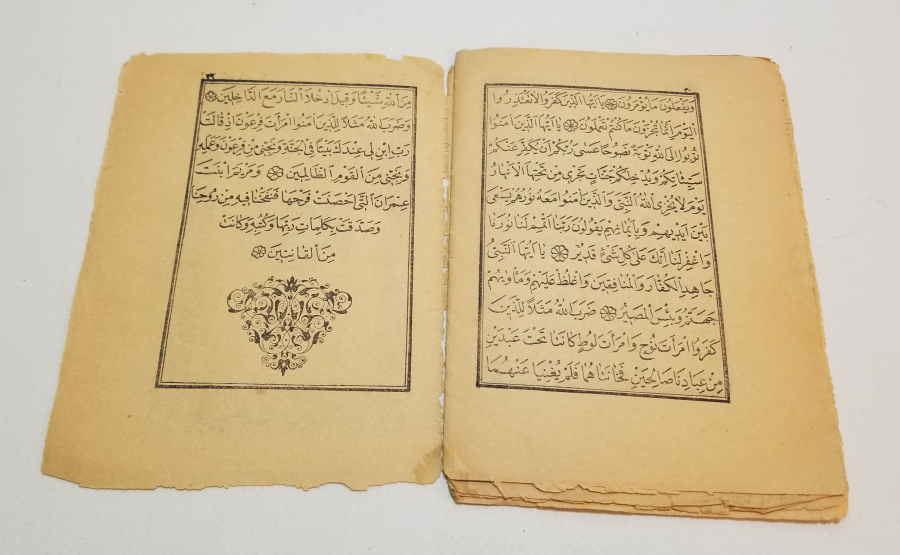 ٢٠
وَيَفْعَلُونَ مَا يُؤْمَرُونَ ۞ يَا اَيُّهَا الَّذِينَ كَفَرُوا لَا تَعْتَذِرُوا
الْيَوْمَ اِنَّمَا تُجْزَوْنَ مَا كُنْتُمْ تَعْمَلُونَ ۞ يَا اَيُّهَا الَّذِينَ اٰمَنُوا
تُوبُوا اِلَى اللهِ تَوْبَةً نَصُوحًا عَسٰى رَبُّكُمْ اَنْ يُكَفِّرَ عَنْكُمْ
سَيِّئَاتِكُمْ وَيُدْخِلَكُمْ جَنَّاتٍ تَجْرِى مِنْ تَحْتِهَا الْاَنْهَارُ
يَوْمَ لَا يُخْزِى اللهُ النَّبِىَّ وَالَّذِينَ اٰمَنُوا مَعَهُ نُورُهُمْ يَسْعٰى
بَيْنَ اَيْدِيهِمْ وَبِاَيْمَانِهِمْ يَقُولُونَ رَبَّنَا اَتْمِمْ لَنَا نُورَنَا
وَاغْفِرْ لَنَا اِنَّكَ عَلٰى كُلِّ شَىْءٍ قَدِيرٌ ۞ يَا اَيُّهَا النَّبِىُّ
جَاهِدِ الْكُفَّارَ وَالْمُنَافِقِينَ وَاغْلُظْ عَلَيْهِمْ وَمَأْوٰيهُمْ
جَهَنَّمُ وَبِئْسَ الْمَصِيرُ ۞ ضَرَبَ اللهُ مَثَلًا لِلَّذِينَ
كَفَرُوا امْرَاَتَ نُوحٍ وَامْرَاَتَ لُوطٍ كَانَتَا تَحْتَ عَبْدَيْنِ
مِنْ عِبَادِنَا صَالِحَيْنِ فَخَانَتَاهُمَا فَلَمْ يُغْنِيَا عَنْهُمَا
مِنَ اللهِ شَيْئًا وَقِيلَ ادْخُلَا النَّارَ مَعَ الدَّاخِلِينَ ۞
وَضَرَبَ اللهُ مَثَلًا لِلَّذِينَ اٰمَنُوا امْرَاَتَ فِرْعَوْنَ اِذْ قَالَتْ
رَبِّ ابْنِ لِى عِنْدَكَ بَيْتًا فِى الْجَنَّةِ وَنَجِّنِى مِنْ فِرْعَوْنَ وَعَمَلِهِ
وَنَجِّنِى مِنَ الْقَوْمِ الظَّالِمِينَ ۞ وَمَرْيَمَ ابْنَتَ
عِمْرَانَ الَّتِى اَحْصَنَتْ فَرْجَهَا فَنَفَخْنَا فِيهِ مِنْ رُوحِنَا
وَصَدَّقَتْ بِكَلِمَاتِ رَبِّهَا وَكُتُبِهِ وَكَانَتْ
مِنَ الْقَانِتِينَ ۞